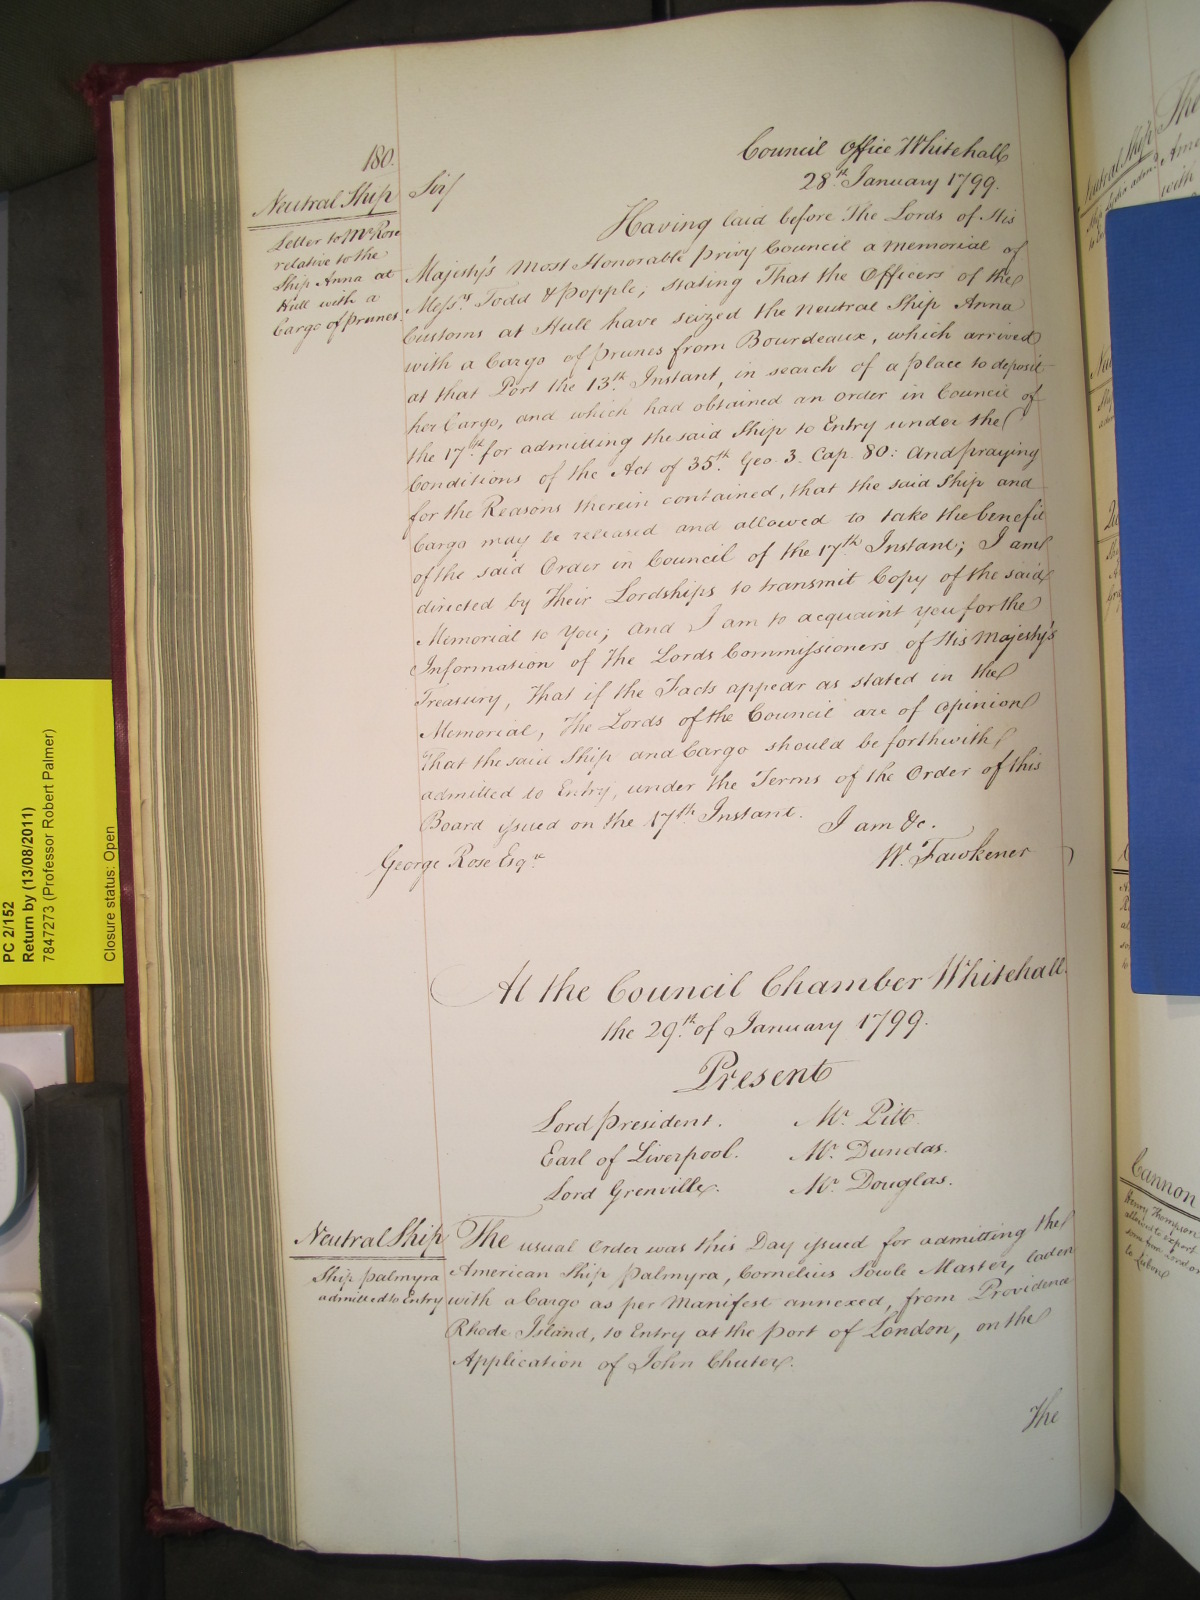 180.
Council Office Whitehall
28th January 1799.
Neutral Ship
Letter to Mr Rose
relative to the
Ship Anna at
Hull with a
Cargo of Prunes.
Sir/
Having laid before The Lords of His
Majesty's Most Honorable Privy Council a Memorial of
Messrs. Todd & Popple; stating That the Officers of the
Customs at Hull have seized the Neutral Ship Anna
with a Cargo of Prunes from Bourdeaux, which arrived
at that Port the 13th. Instant, in search of a place to deposit
her Cargo, and which had obtained an Order in Council of
the 17th. for admitting the said Ship to Entry under the
Conditions of the Act of 35th. Geo 3. Cap. 80: And praying
for the Reasons therein contained, that the said Ship and
Cargo may be released and allowed to take the benefit
of the said Order in Council of the 17th Instant; I am
directed by Their Lordships to transmit Copy of the said
Memorial to You; And I am to acquaint you for the
Information of The Lords Commissioners of His Majesty's
Treasury, That if the Facts appear as stated in the
Memorial, The Lords of the Council are of opinion
That the said Ship and Cargo should be forthwith
admitted to Entry, under the Terms of the Order of this
Board issued on the 17th Instant. I am &c.
George Rose Esqr.
W. Fawkener
At the Council Chamber Whitehall
the 29th. of January 1799.
Present
Lord President. Mr. Pitt
Earl of Liverpool. Mr. Dundas.
Lord Grenville. Mr. Douglas.
Neutral Ship
Ship Palmyra
admitted to Entry
The usual Order was this Day issued for admitting the
American Ship Palmyra, Cornelius Sowle Master, laden
with a Cargo as per Manifest annexed, from Providence
Rhode Island, to Entry at the Port of London, on the
Application of John Chuter.
The
PC 2/152
Return by (13/08/2011)
7847273 (Professor Robert Palmer)
Closure status: Open
The
Neutral Ship
with
Cannon
Henry Thompson
to Lisbon